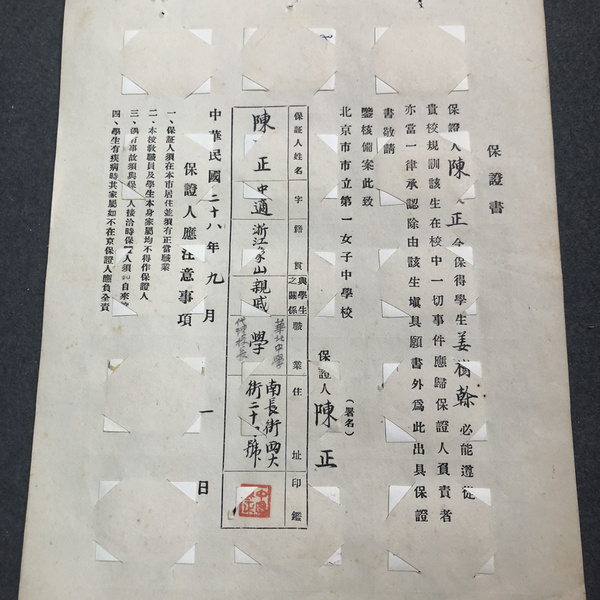 保證書
保證人陳正今保得學生姜樹榦必能遵從
貴校規訓該生在校中一切事件應歸保證人負責者
亦當一律承認除由該生塡具願書外爲此出具保證
書敬請
鑒核備案此致
北京市市立第一女子中學校
保證人陳正
(署名)
保証人姓名 字 籍貫 與學生之關係 職業 住址 印鑑
陳正 中適 浙江象山 親戚 學 南長街四大街二十 號
華北中學
代理校長
中華民國二十八年九月一日
保證人應注意事項
一、保証人須在本市居住並須有正當職業
二、本校敎職員及學生本身家屬均不得作保證人
三、遇有事故須與保 人接洽時保 人須 自來
四、學生有疾病時其家屬如不在京保證人應負全責